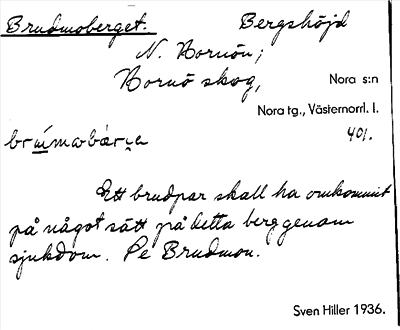 Brudmoberget. Bergshöjd
N. Bornön;
Bornö skog, Nora s:n
Nora tg., Västernorrl. l.
401.
Ett brudpar skall ha omkommit
på något sätt på detta berg genom
sjukdom. Pe Brudmon.
Sven Hiller 1936.